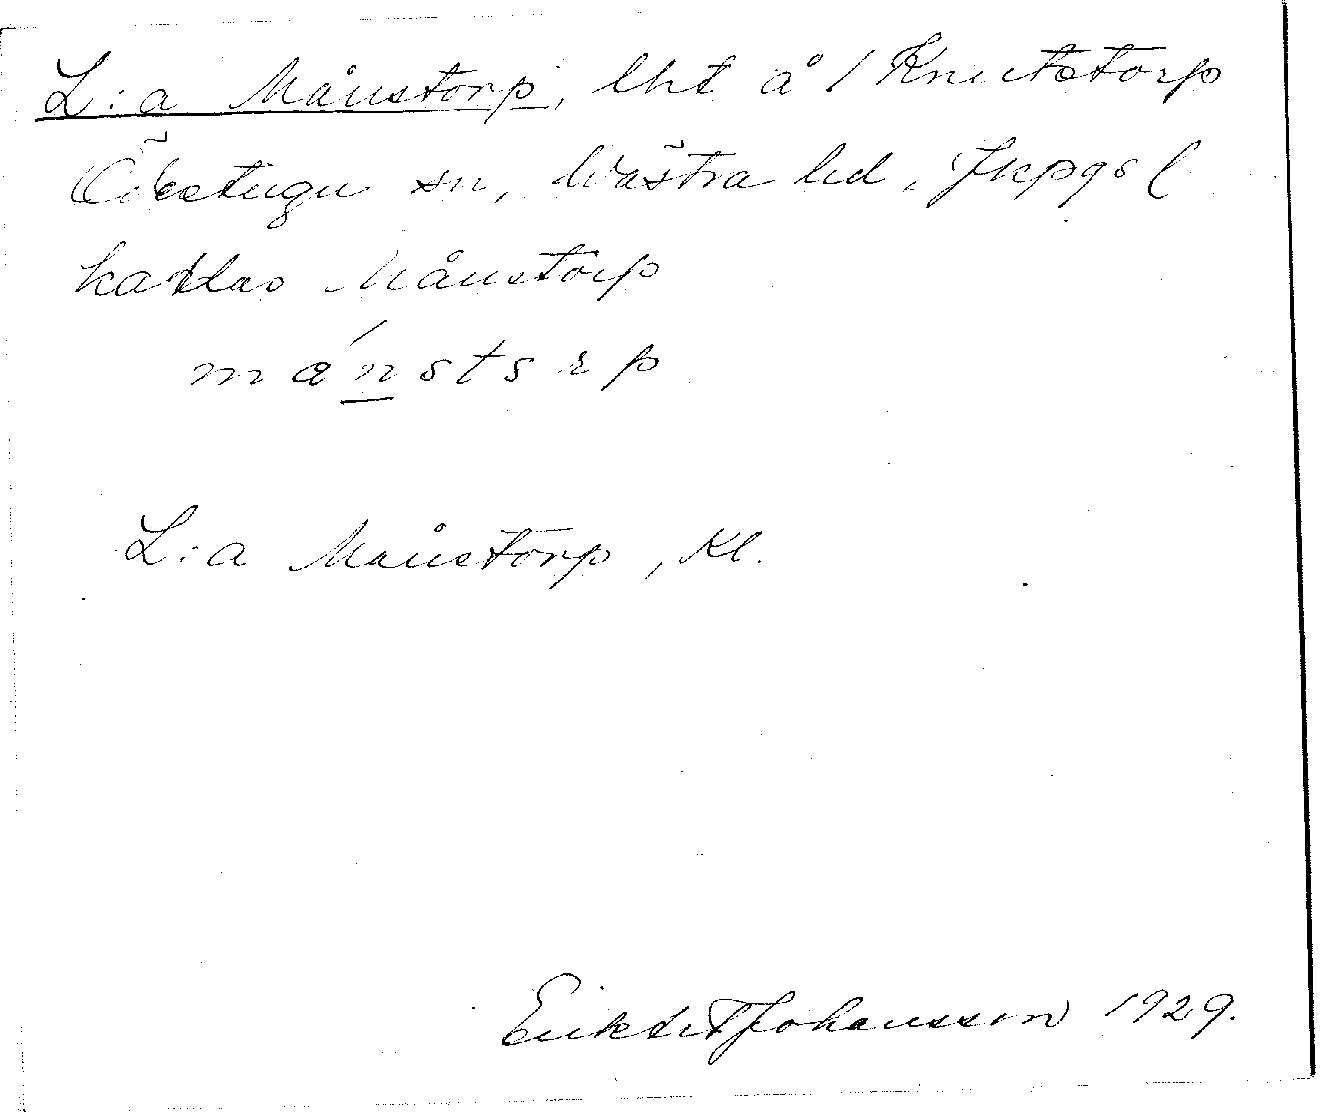 L:a Månstorp, lht å 1 Knutstorp
Öbestugu sn, Västra hd, Jkpgs l
kallas Månstorp
månstorp
L:a Månstorp, Kl.
Johansson 1929.